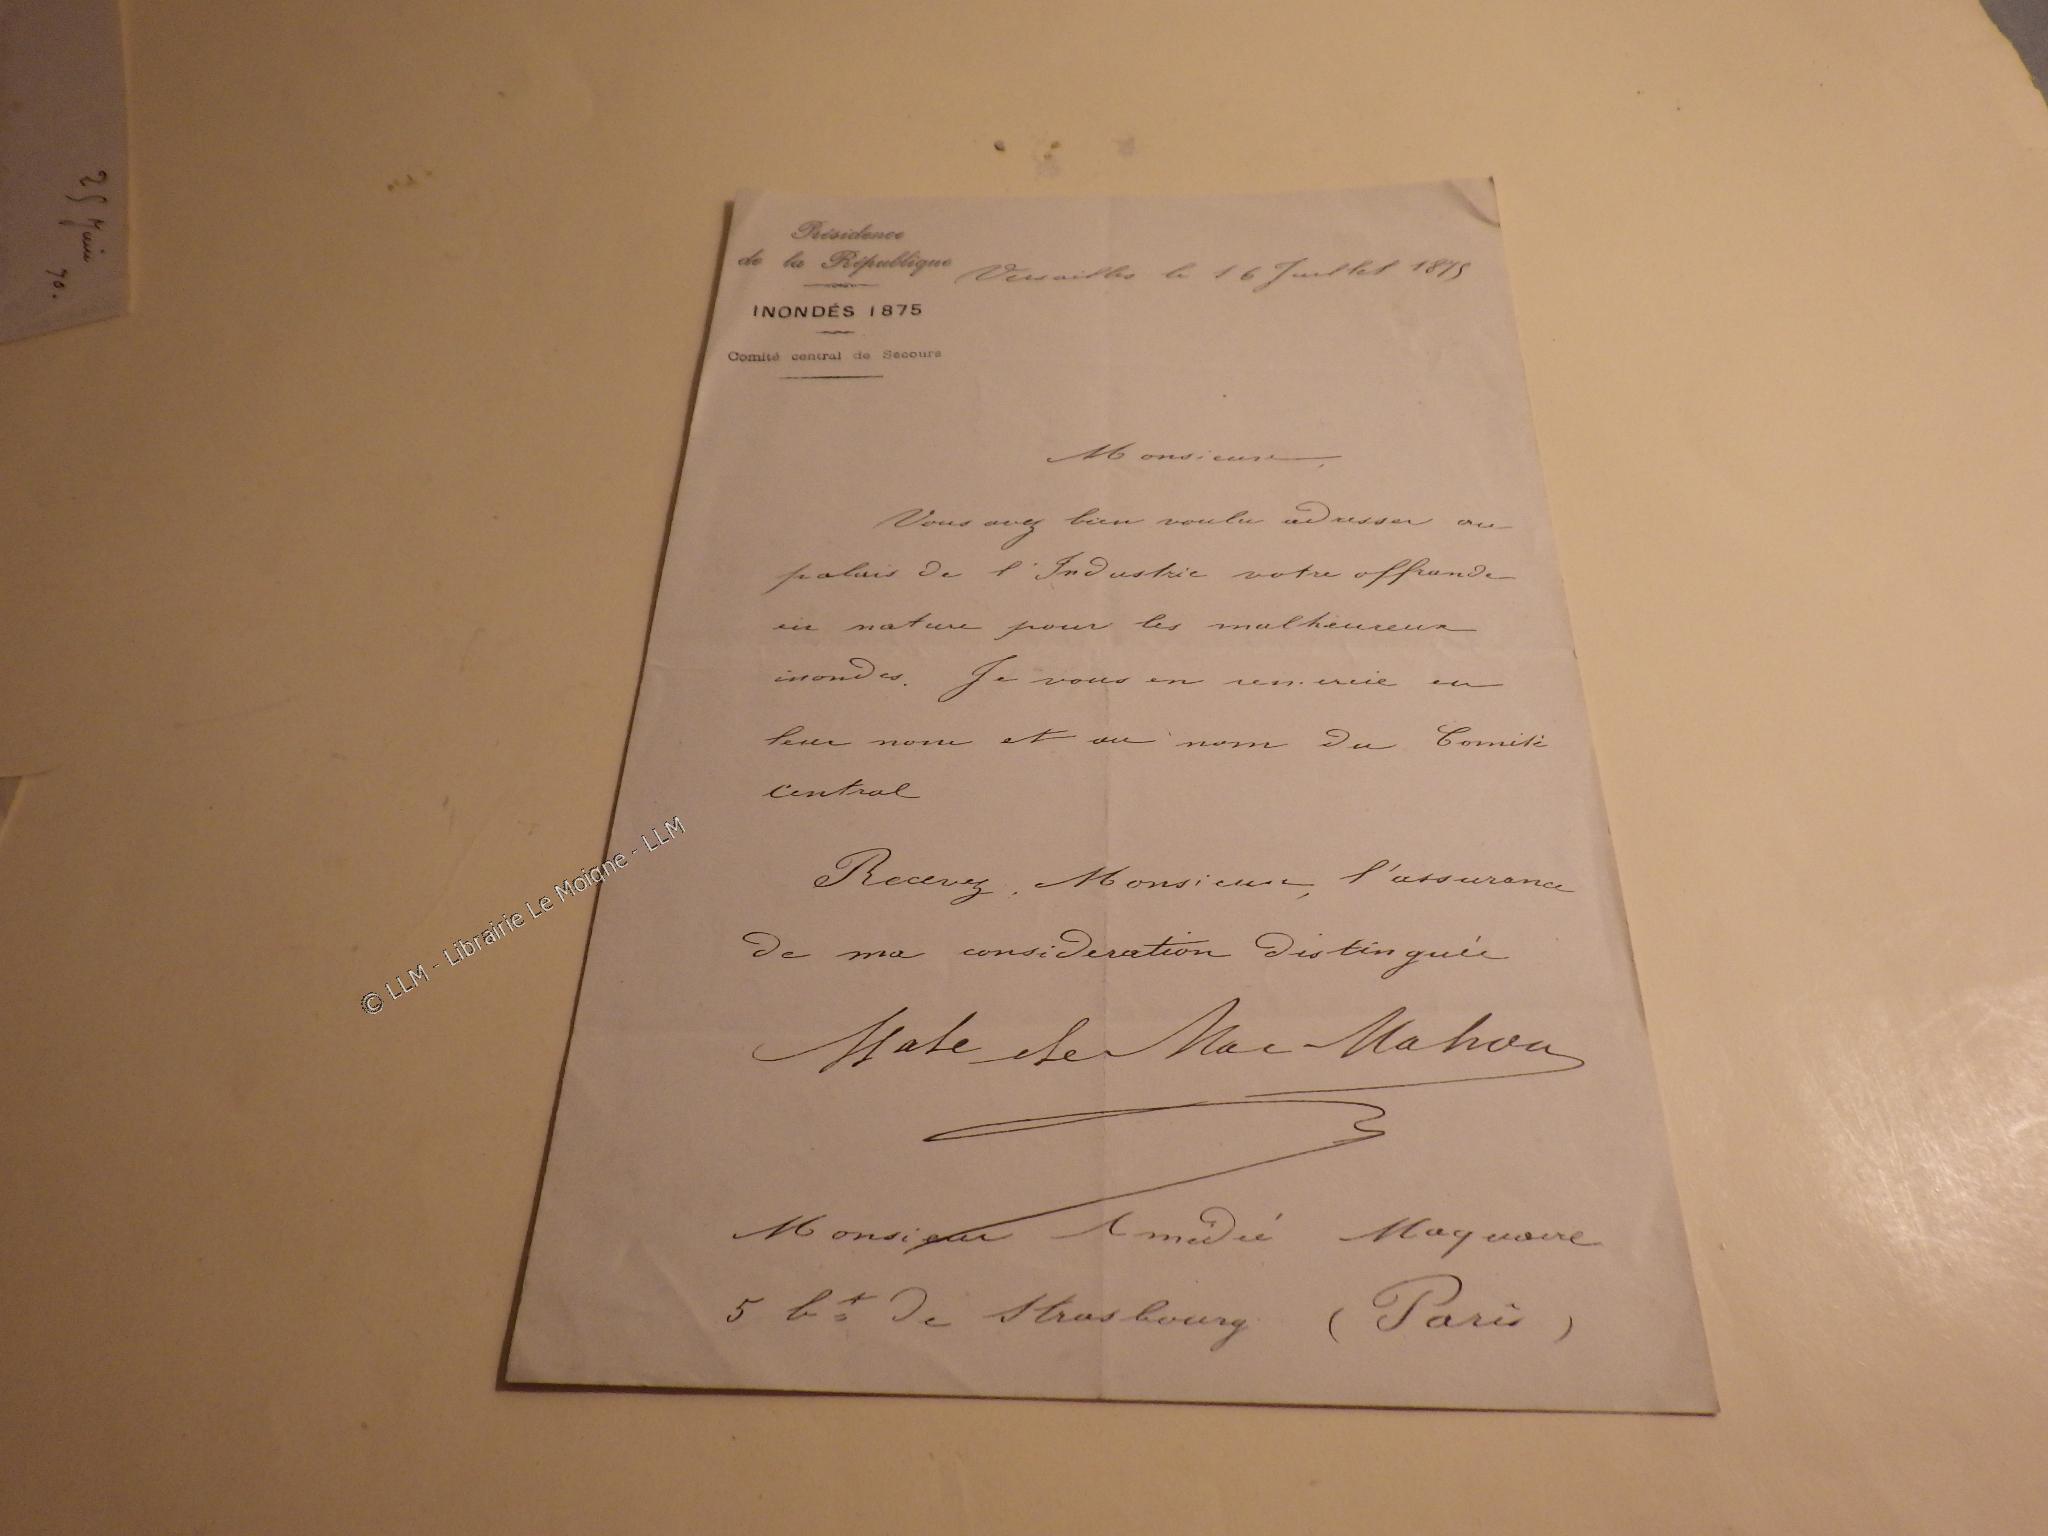 Présidence
de la République
Versailles le 16 Juillet 1875
INONDÉS 1875
Comité central de Secours
Monsieur,
Vous avez bien voulu adresser au
palais de l'Industrie votre offrande
en nature pour les malheureux
inondés. Je vous en remercie en
leur nom et au nom du Comité
central
Recevez, Monsieur, l'assurance
de ma consideration distinguée
Male de Mac Mahon
Monsieur Amédée Maquaire
5 bt de Strasbourg (Paris)
© LLM - Librairie Le Moigne - LLM
25
70.